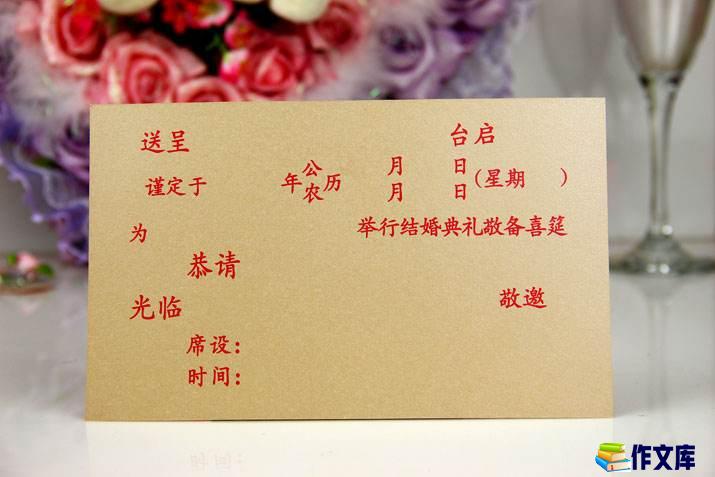 送呈 台启
谨定于 年 公历 月 日 (星期 )
农历 月 日
为 举行结婚典礼敬备喜筵
恭请
光临 敬邀
席设：
时间：
时间：
作文库